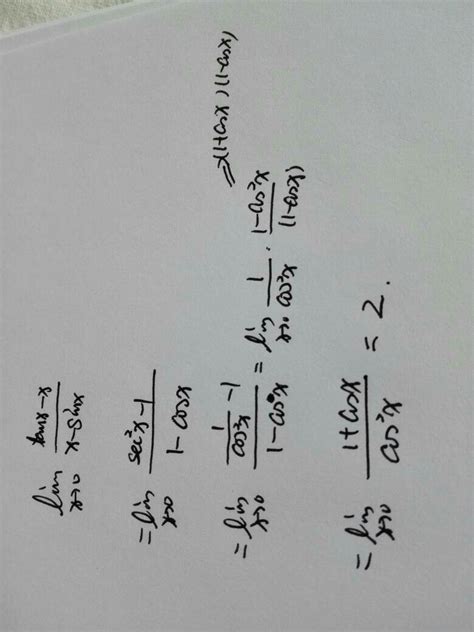 lim x→0 (tanx−x)/(x−sinx)
= lim x→0 (sec²x−1)/(1−cosx)
= lim x→0 (1/cos²x −1)/(1−cosx) = lim x→0 1/cos²x · (1−cos²x)/(1−cosx)
=(1+cosx)(1−cosx)
= lim x→0 (1+cosx)/cos²x = 2.